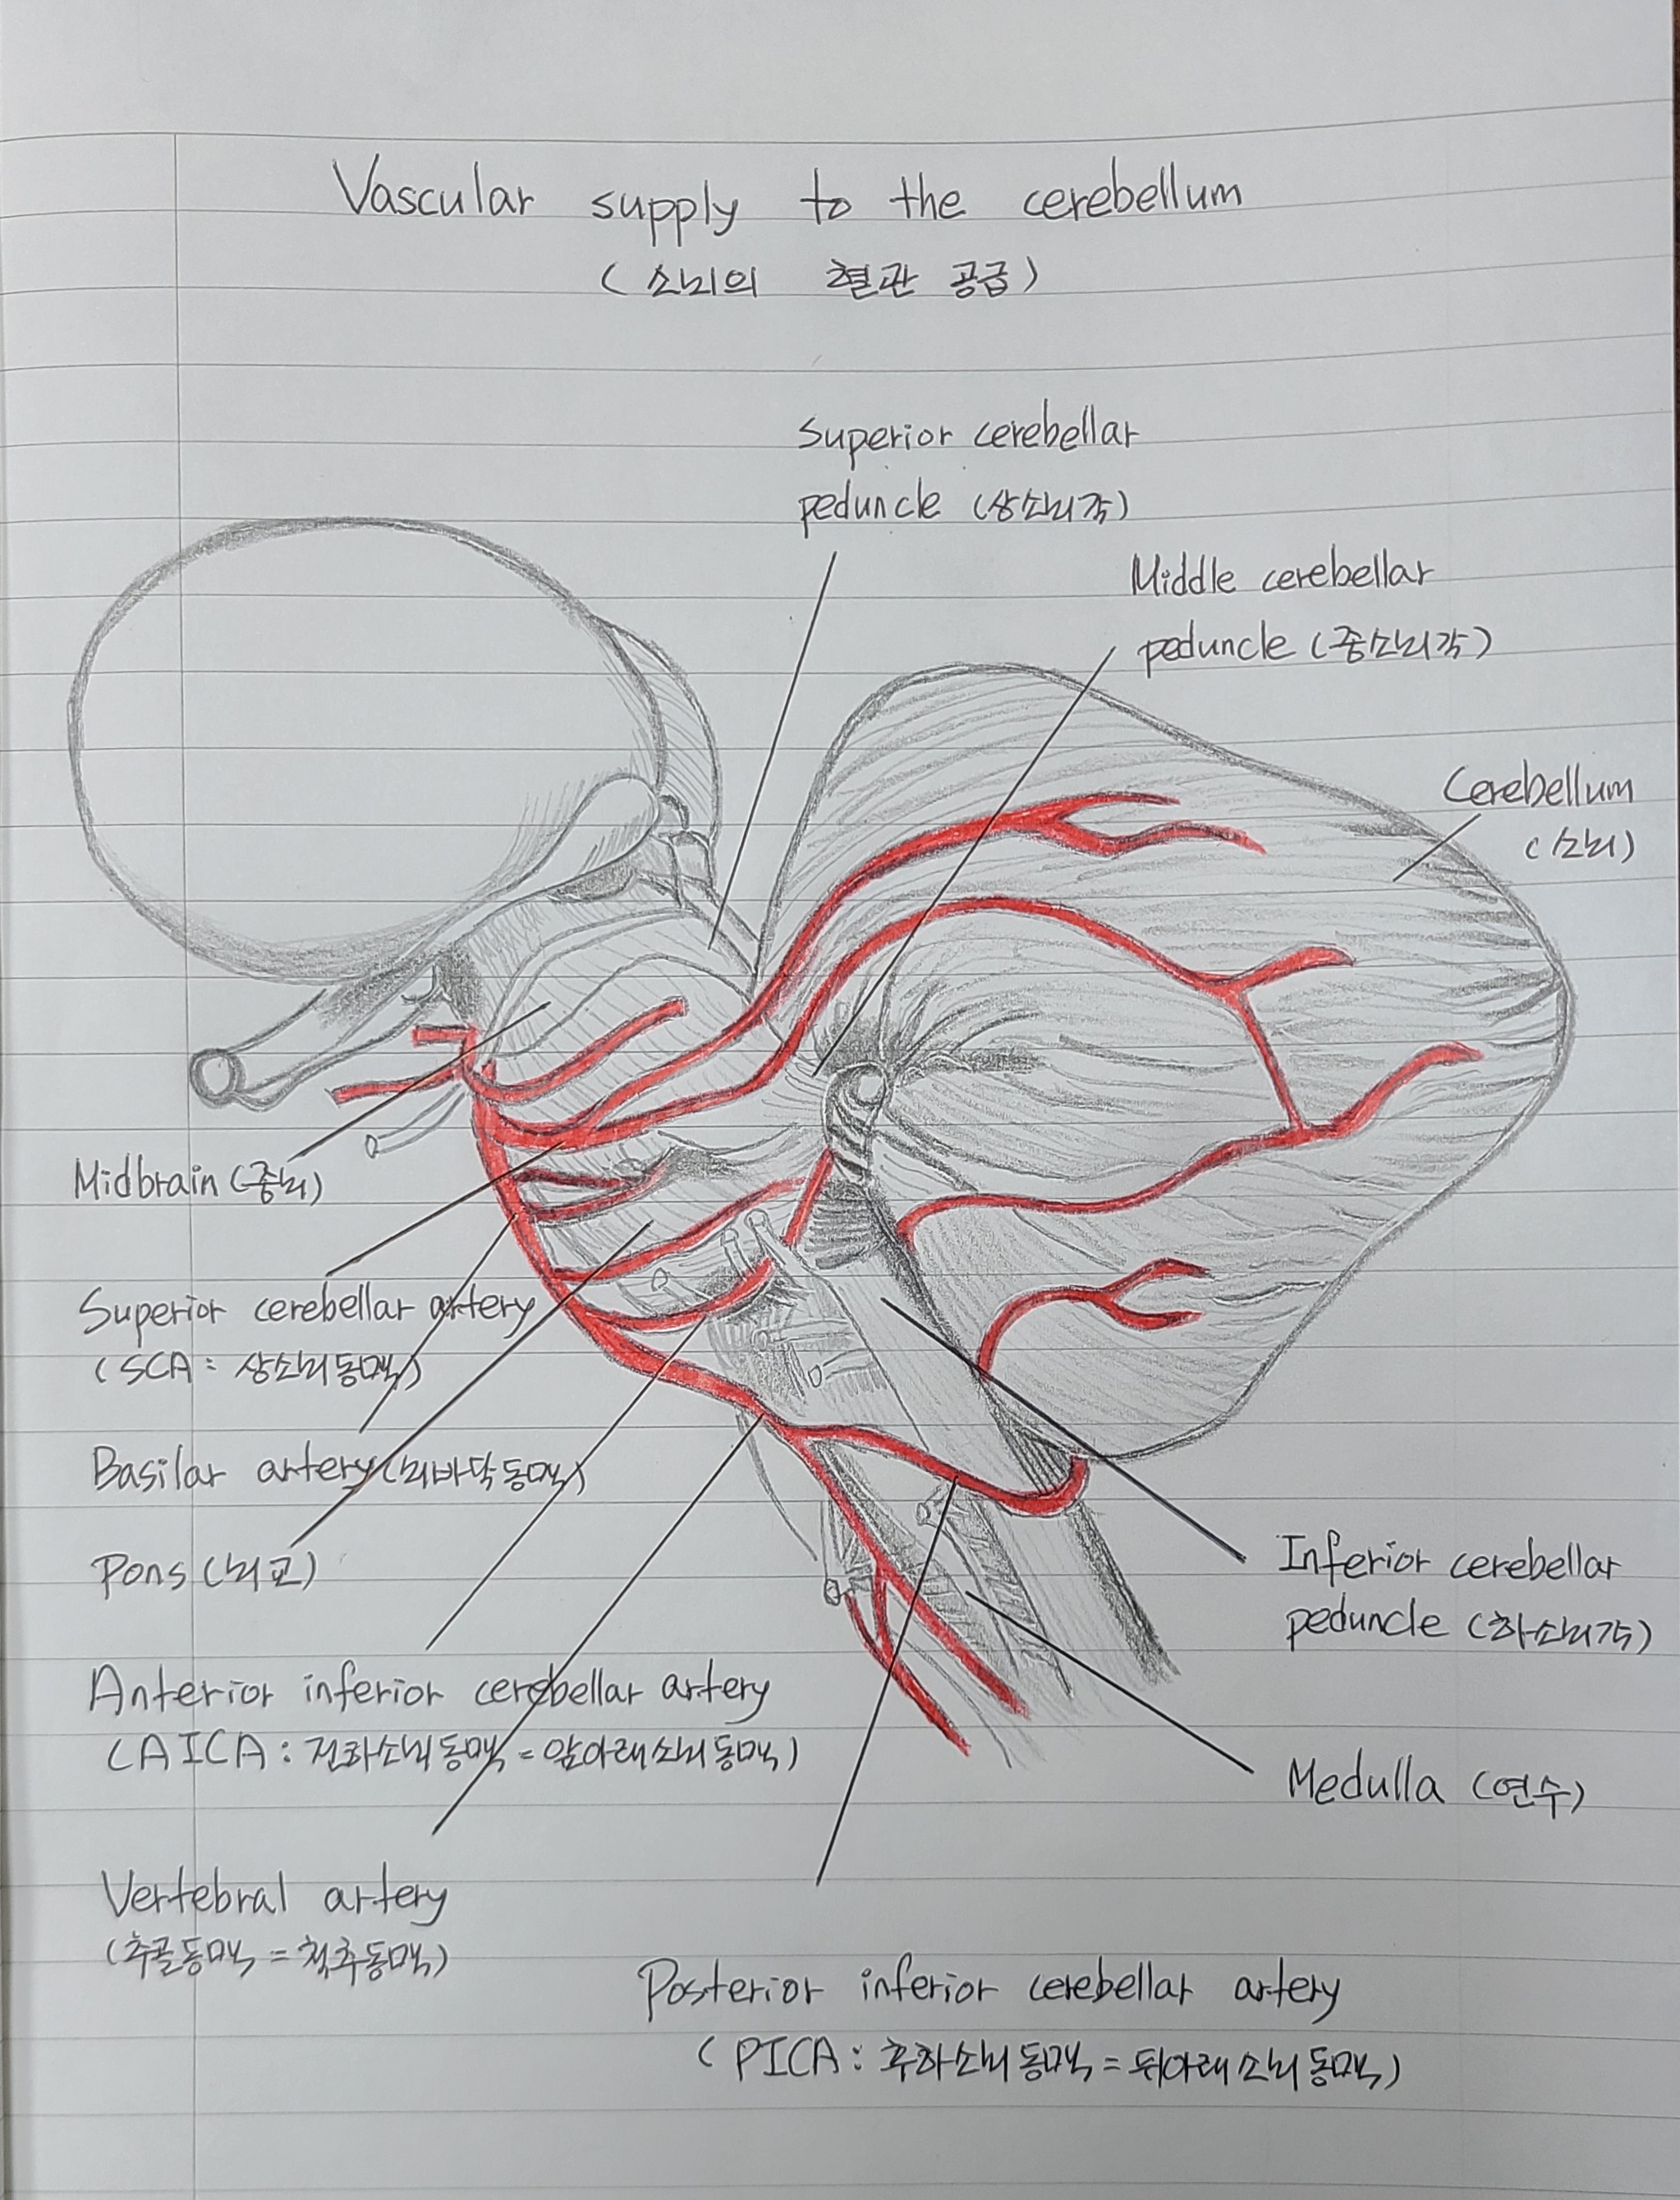 Vascular supply to the cerebellum
(소뇌의 혈관 공급)
Superior cerebellar
peduncle (상소뇌각)
Middle cerebellar
peduncle (중소뇌각)
Cerebellum
(소뇌)
Midbrain (중뇌)
Superior cerebellar artery
(SCA : 상소뇌동맥)
Basilar artery (뇌바닥동맥)
Pons (뇌교)
Inferior cerebellar
peduncle (하소뇌각)
Anterior inferior cerebellar artery
(AICA : 전하소뇌동맥 = 앞아래소뇌동맥)
Medulla (연수)
Vertebral artery
(추골동맥 = 척추동맥)
Posterior inferior cerebellar artery
(PICA : 후하소뇌동맥 = 뒤아래소뇌동맥)